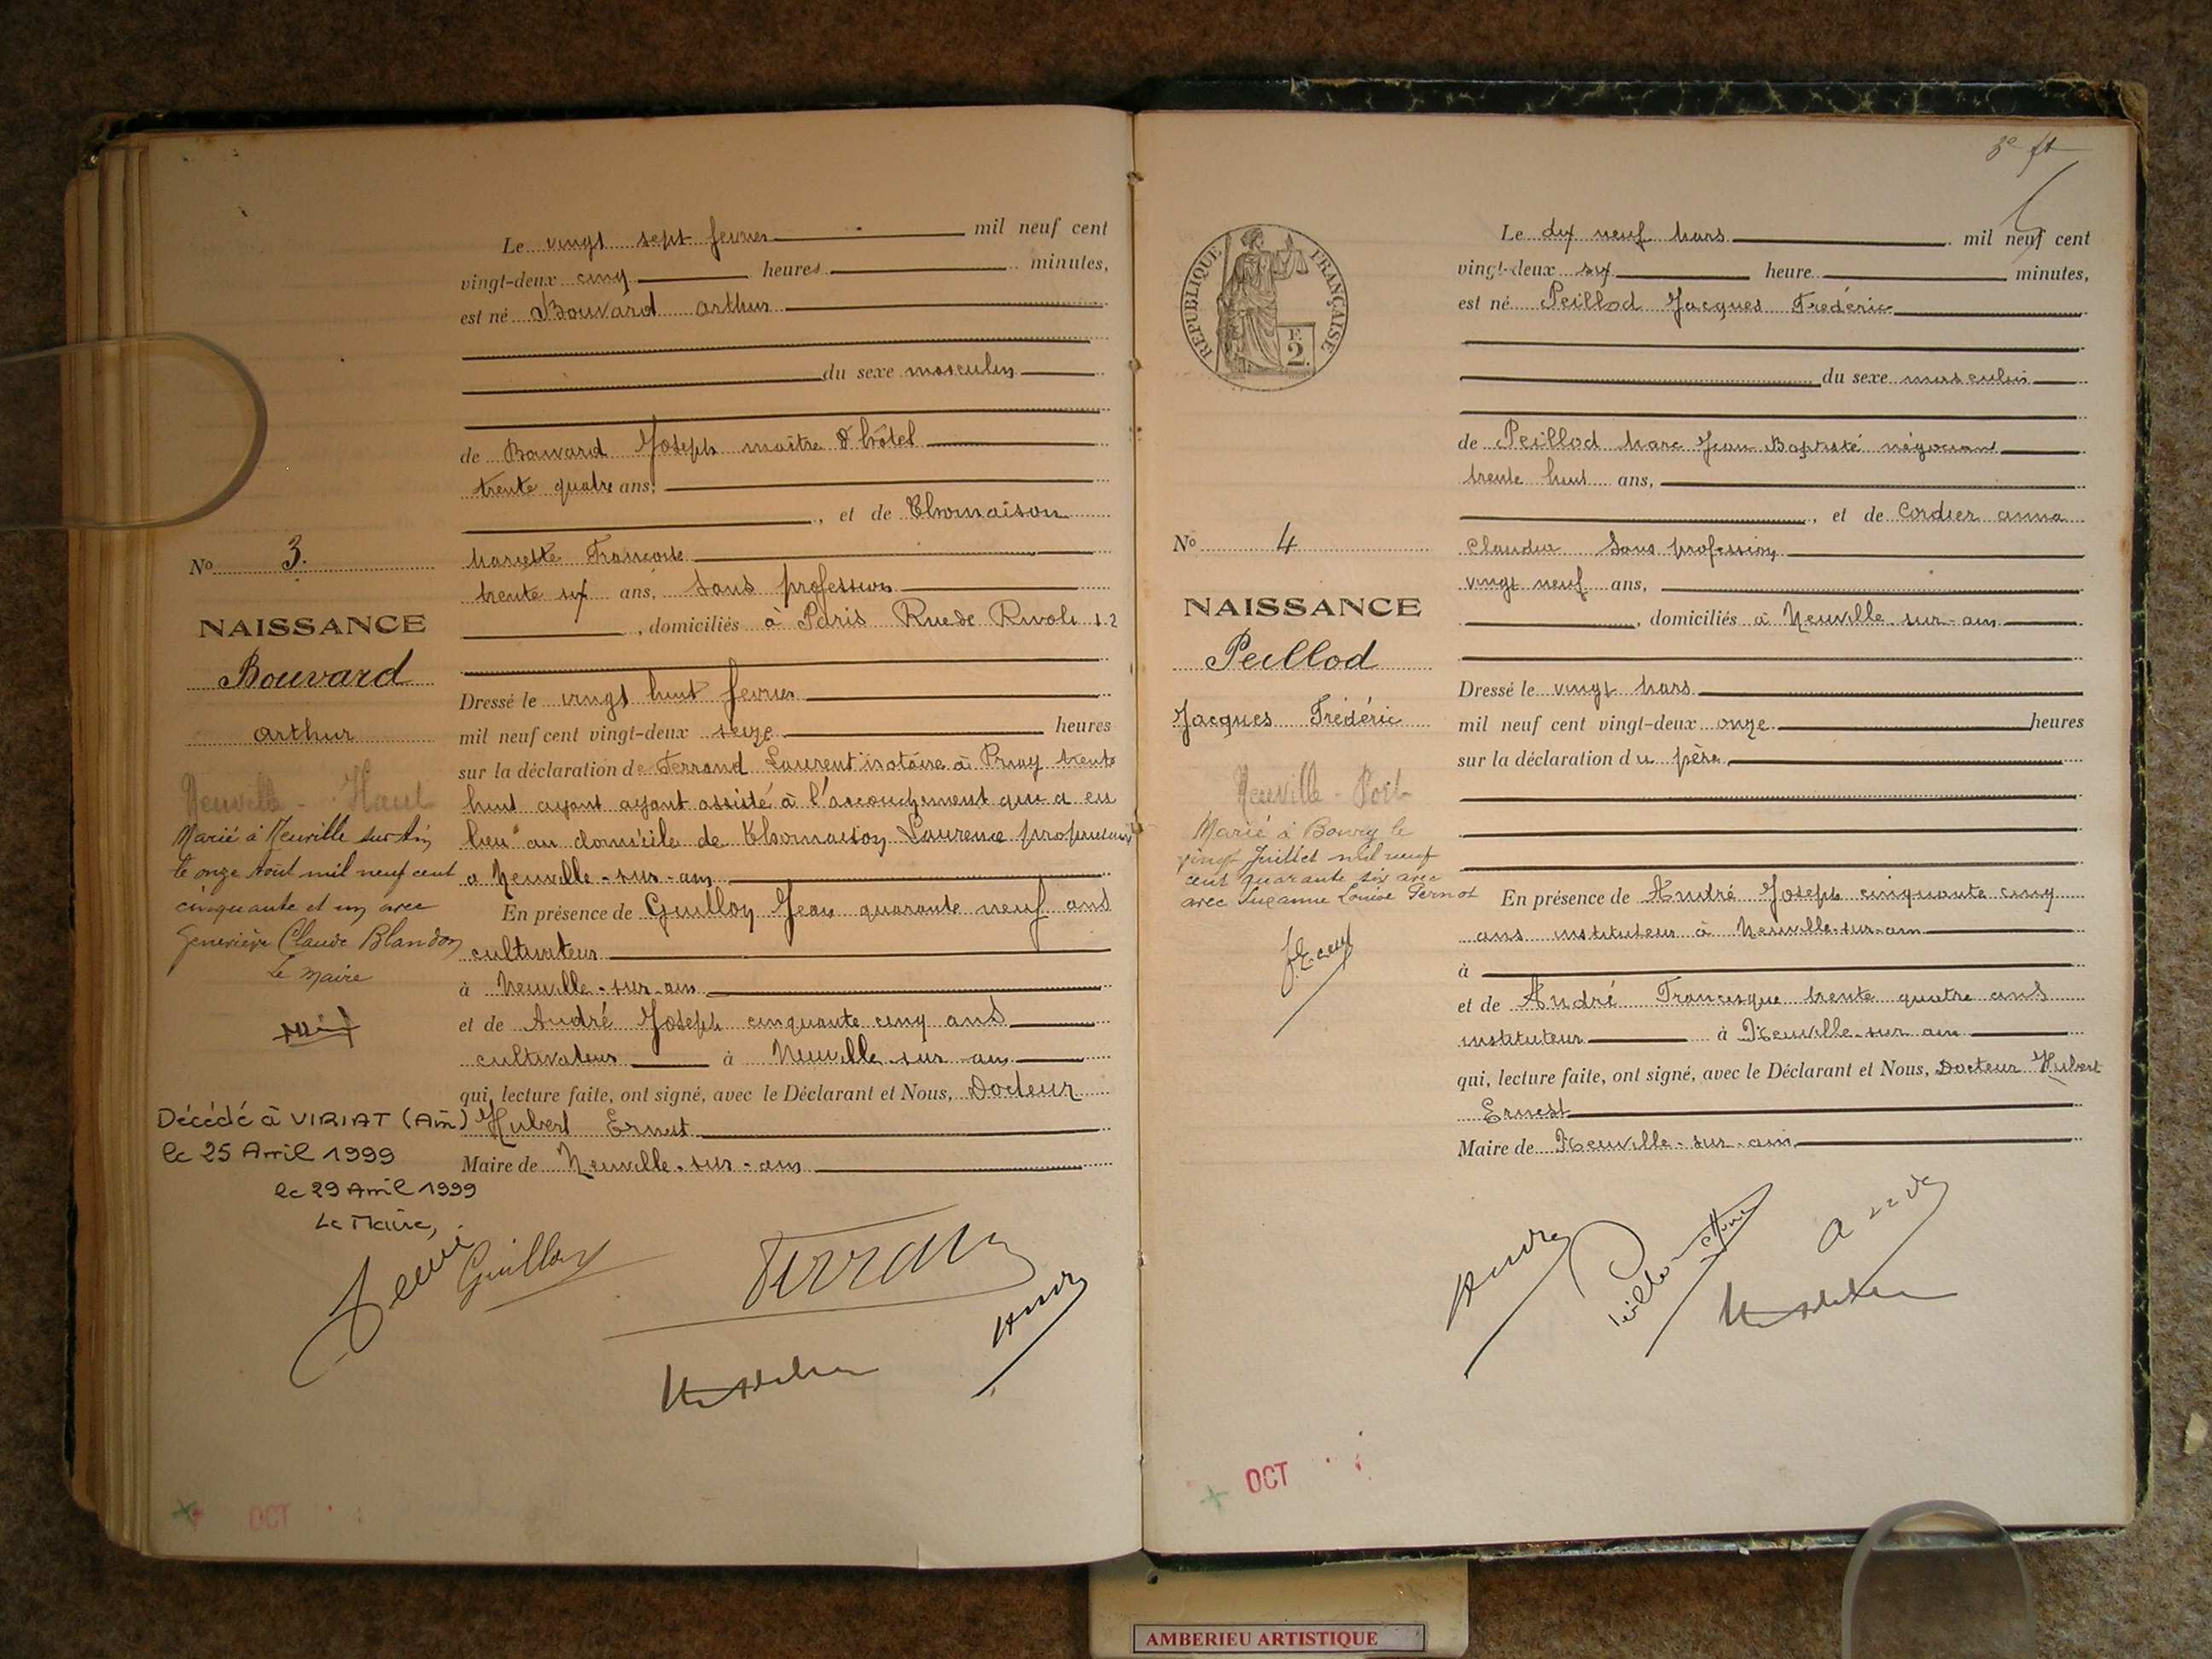 Le vingt sept fevrier mil neuf cent
vingt-deux cinq heures minutes,
est né Bouvard arthur
du sexe masculin
de Bouvard Joseph maître d'hôtel
trente quatre ans,
, et de Thomaison
Mariette Francoise
trente six ans, sans profession
, domiciliés à Paris Rue de Rivoli 12
Dressé le vingt huit fevrier
mil neuf cent vingt-deux seize heures
sur la déclaration de Ferrand Laurent notaire à Priay trente
huit ayant ayant assisté à l'accouchement qui a eu
lieu au domicile de Thomaison Laurence
a Neuville-sur-ain
En présence de Guilloy Jean quarante neuf ans
cultivateur
à Neuville-sur-ain
et de André Joseph cinquante cinq ans
cultivateur à Neuville sur ain
qui, lecture faite, ont signé, avec le Déclarant et Nous, Docteur
Hubert Ernest
Maire de Neuville-sur-ain
No 3.
NAISSANCE
Bouvard
arthur
Neuville - Haut
Marié à Neuville sur Ain
le onze Août mil neuf cent
cinquante et un avec
Geneviève Claude Blandon
Le Maire
Décédé à VIRIAT (Ain)
le 25 Avril 1999
le 29 Avril 1999
Le Maire,
Guilloy
Ferran
OCT
RÉPUBLIQUE FRANÇAISE
F.
2
Le dix neuf Mars mil neuf cent
vingt-deux six heure minutes,
est né Peillod Jacques Frédéric
du sexe masculin
de Peillod Marc Jean Baptiste négociant
trente huit ans,
, et de Cordier anna
Claudia Sans profession
vingt neuf ans,
, domiciliés à Neuville-sur-ain
Dressé le vingt Mars
mil neuf cent vingt-deux onze heures
sur la déclaration du père
En présence de André Joseph cinquante cinq
ans instituteur à Neuville-sur-ain
à
et de André Francisque trente quatre ans
instituteur à Neuville-sur ain
qui, lecture faite, ont signé, avec le Déclarant et Nous, Docteur Hubert
Ernest
Maire de Neuville-sur-ain
No 4
NAISSANCE
Peillod
Jacques Frédéric
Neuville - Port
Marié à Bourg le
vingt Juillet mil neuf
cent quarante six avec
avec Suzanne Louise Pernot
André
OCT
AMBERIEU ARTISTIQUE